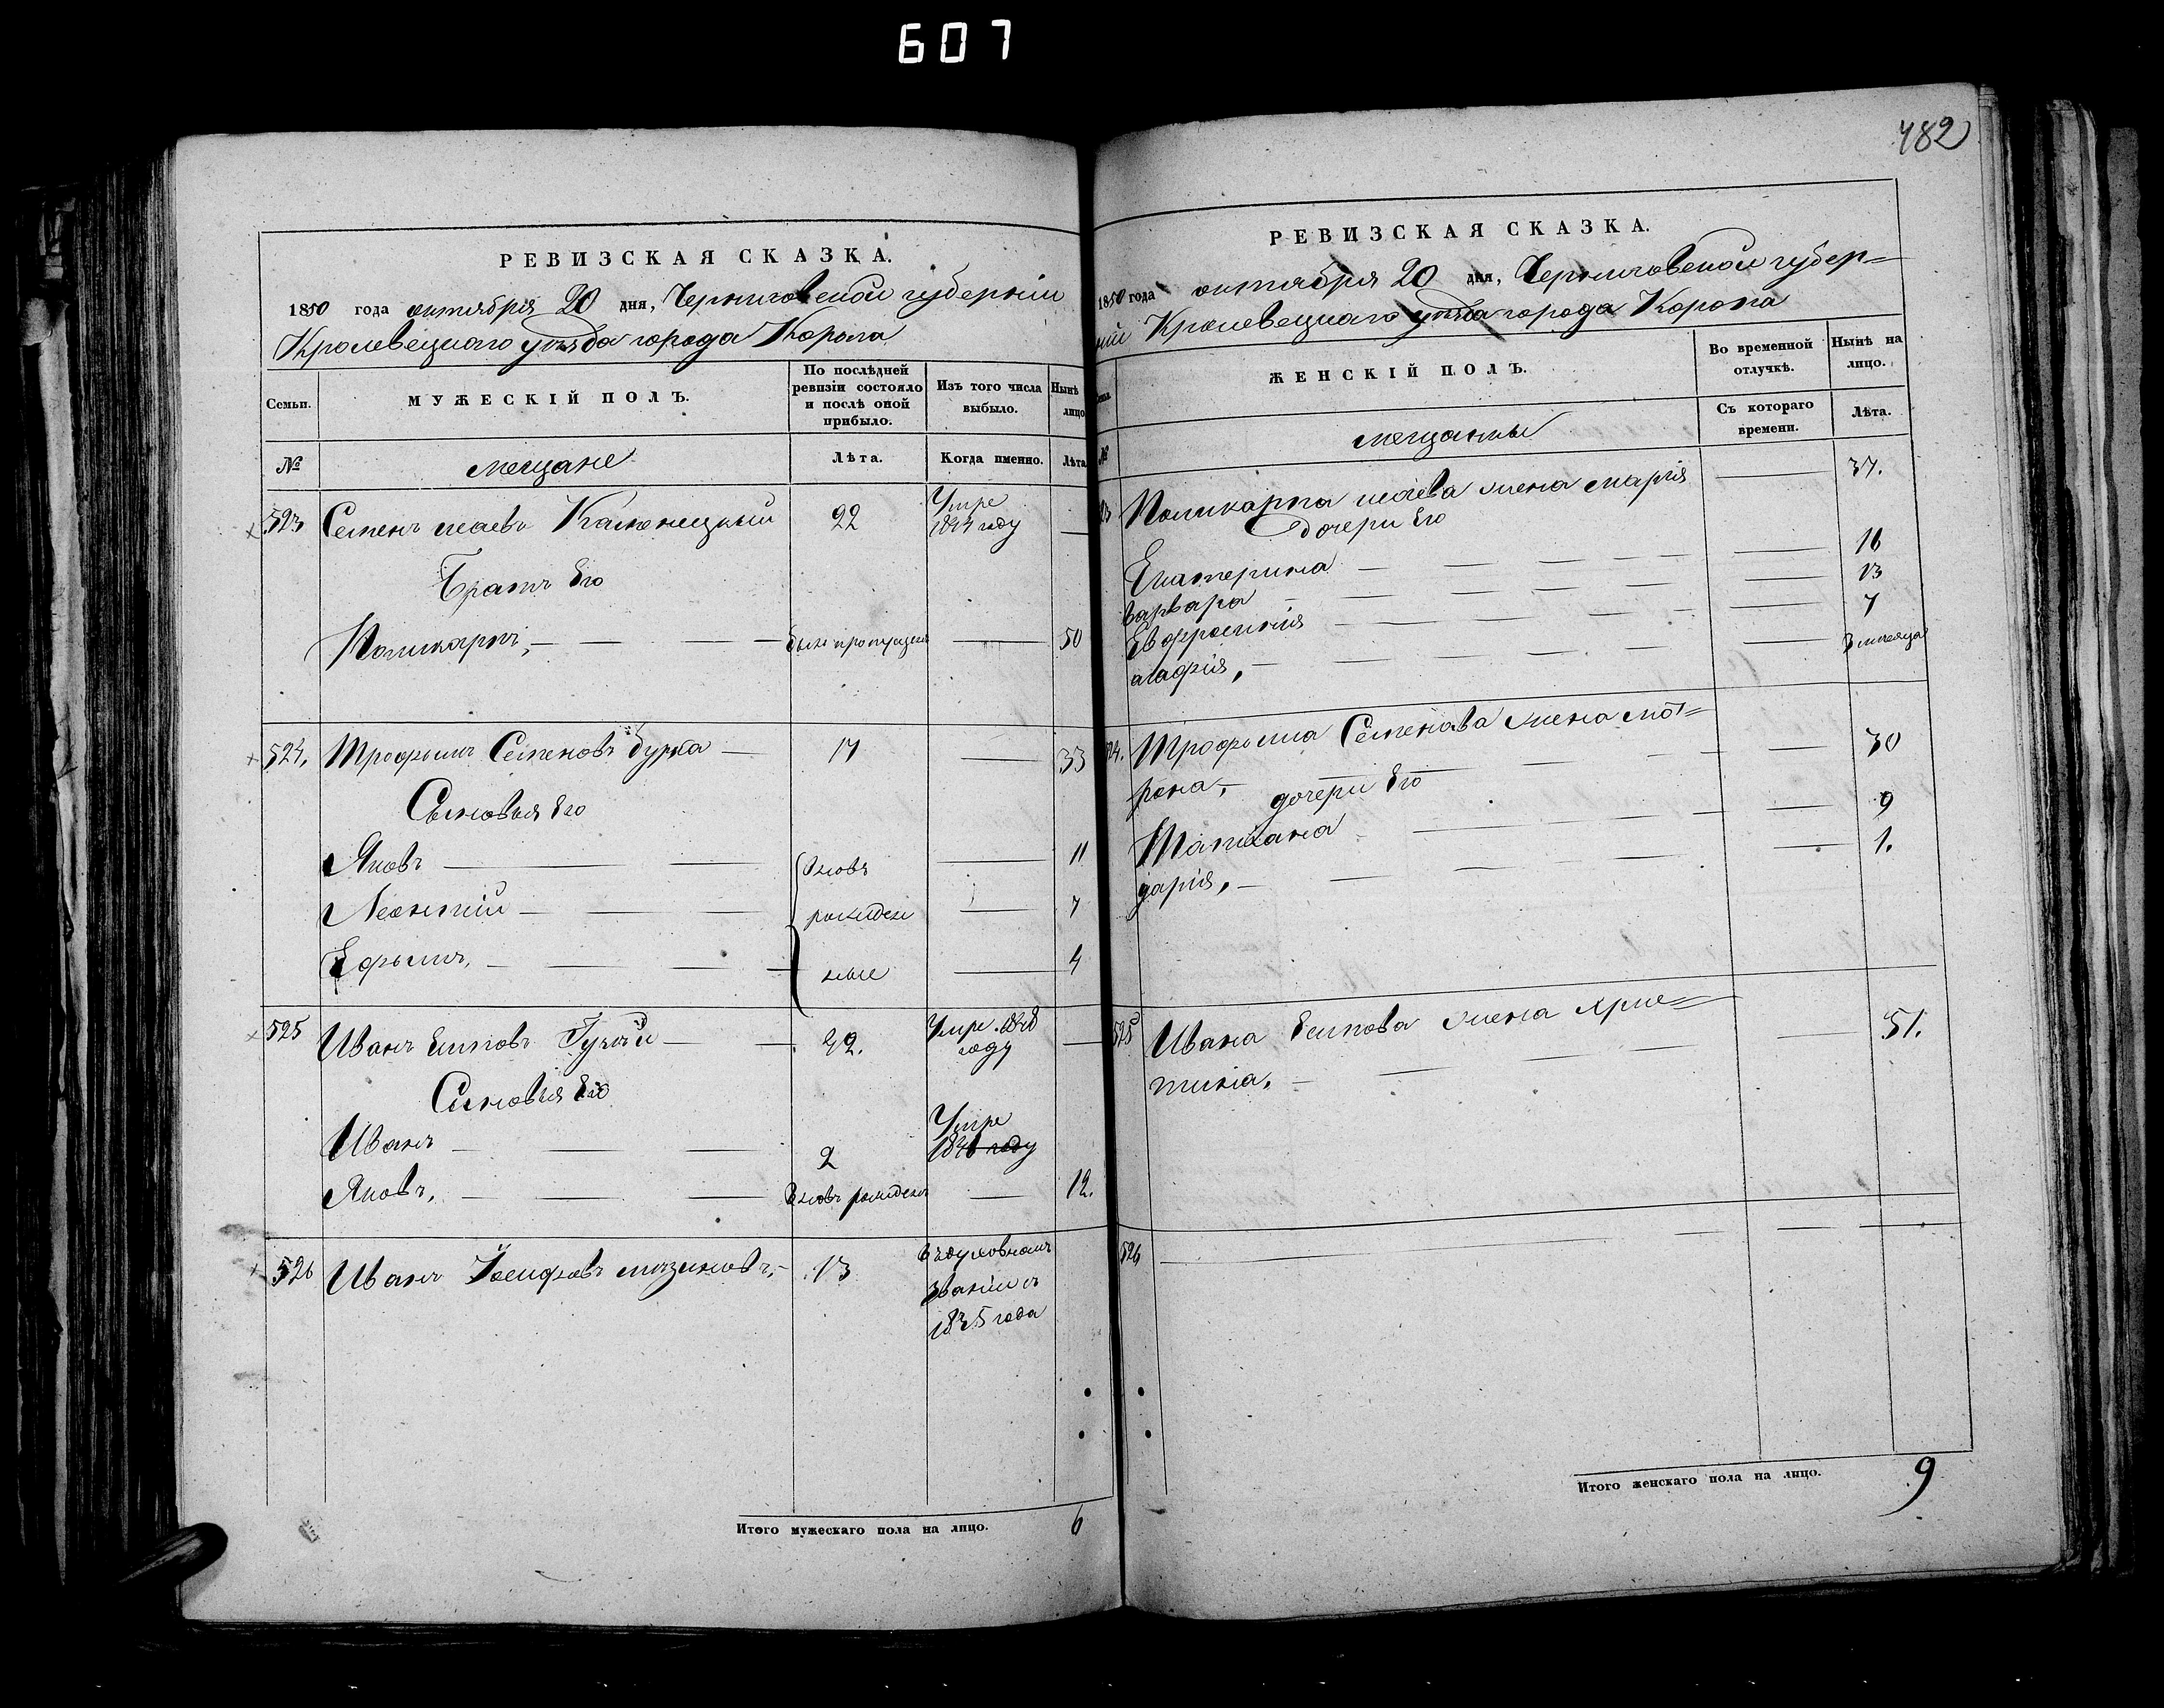 607
РЕВИЗСКАЯ СКАЗКА.
1850 года октября 20 дня, Черниговской губернiи
Кролевецкаго уѣзда города Коропа
Семьи.
МУЖЕСКІЙ ПОЛЪ.
По послѣдней ревизіи состояло и послѣ оной прибыло.
Изъ того числа выбыло.
Нынѣ лицо
№
мещане
Лѣта.
Когда именно.
Лѣта
523 Семенъ исаевъ Каменецкий 22 Умре 1844 году
Братъ Его
Поликарпъ, былъ пропущенъ 50
524. Трофимъ Семеновъ бурка 17 33
Сыновья Его
Яковъ вновь 11
Леонтий рожден 7
Ефимъ, ные 4
525 Иванъ Еиповъ 42. Умре 1848 году
Синовья Его
Иванъ 2 Умре 1846 году
Яковъ, Вновь рожденъ 12.
526 Иванъ Iосифовъ 13 въ духовномъ
званіи съ
1845 года
Итого мужескаго пола на лицо. 6
482
РЕВИЗСКАЯ СКАЗКА.
1850 года октября 20 дня, Черниговской губер=
нiи Кролевецкаго уѣзда города Коропа
ЖЕНСКІЙ ПОЛЪ.
Во временной отлучкѣ.
Нынѣ на лицо.
№
мещанки
Съ котораго времени.
Лѣта.
23 Поликарпа исаева жена марiя 37.
дочери Его
Екатерина 16
варвара 13
Евфросинiя 7
агафiя, 3 месяца
24. Трофима Семенова жена мат=
рона, 30
дочери Его
Татiана 9
дарiя, 1.
525 Ивана Еипова жена Хрис=
тинiа, 51.
526
Итого женскаго пола на лицо. 9